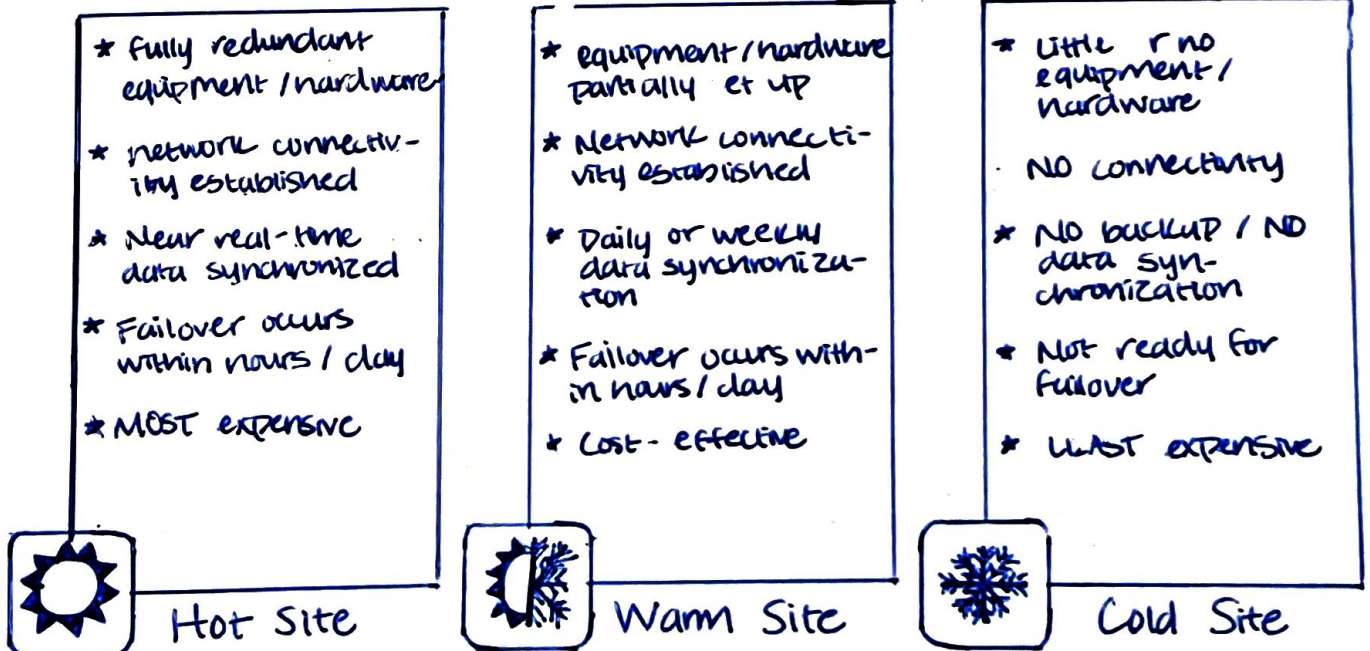 * Fully redundant
equipment / hardware
* network connectiv-
ity established
* Near real-time
data synchronized
* Failover occurs
within hours / day
* MOST expensive
Hot Site
* equipment / hardware
partially et up
* Network connecti-
vity established
* Daily or weekly
data synchroniza-
tion
* Failover ocurs with-
in hours / day
* Cost-effective
Warm Site
* Little r no
equipment /
hardware
NO connectivity
* NO backup / NO
data syn-
chronization
* Not ready for
failover
* LEAST expensive
Cold Site